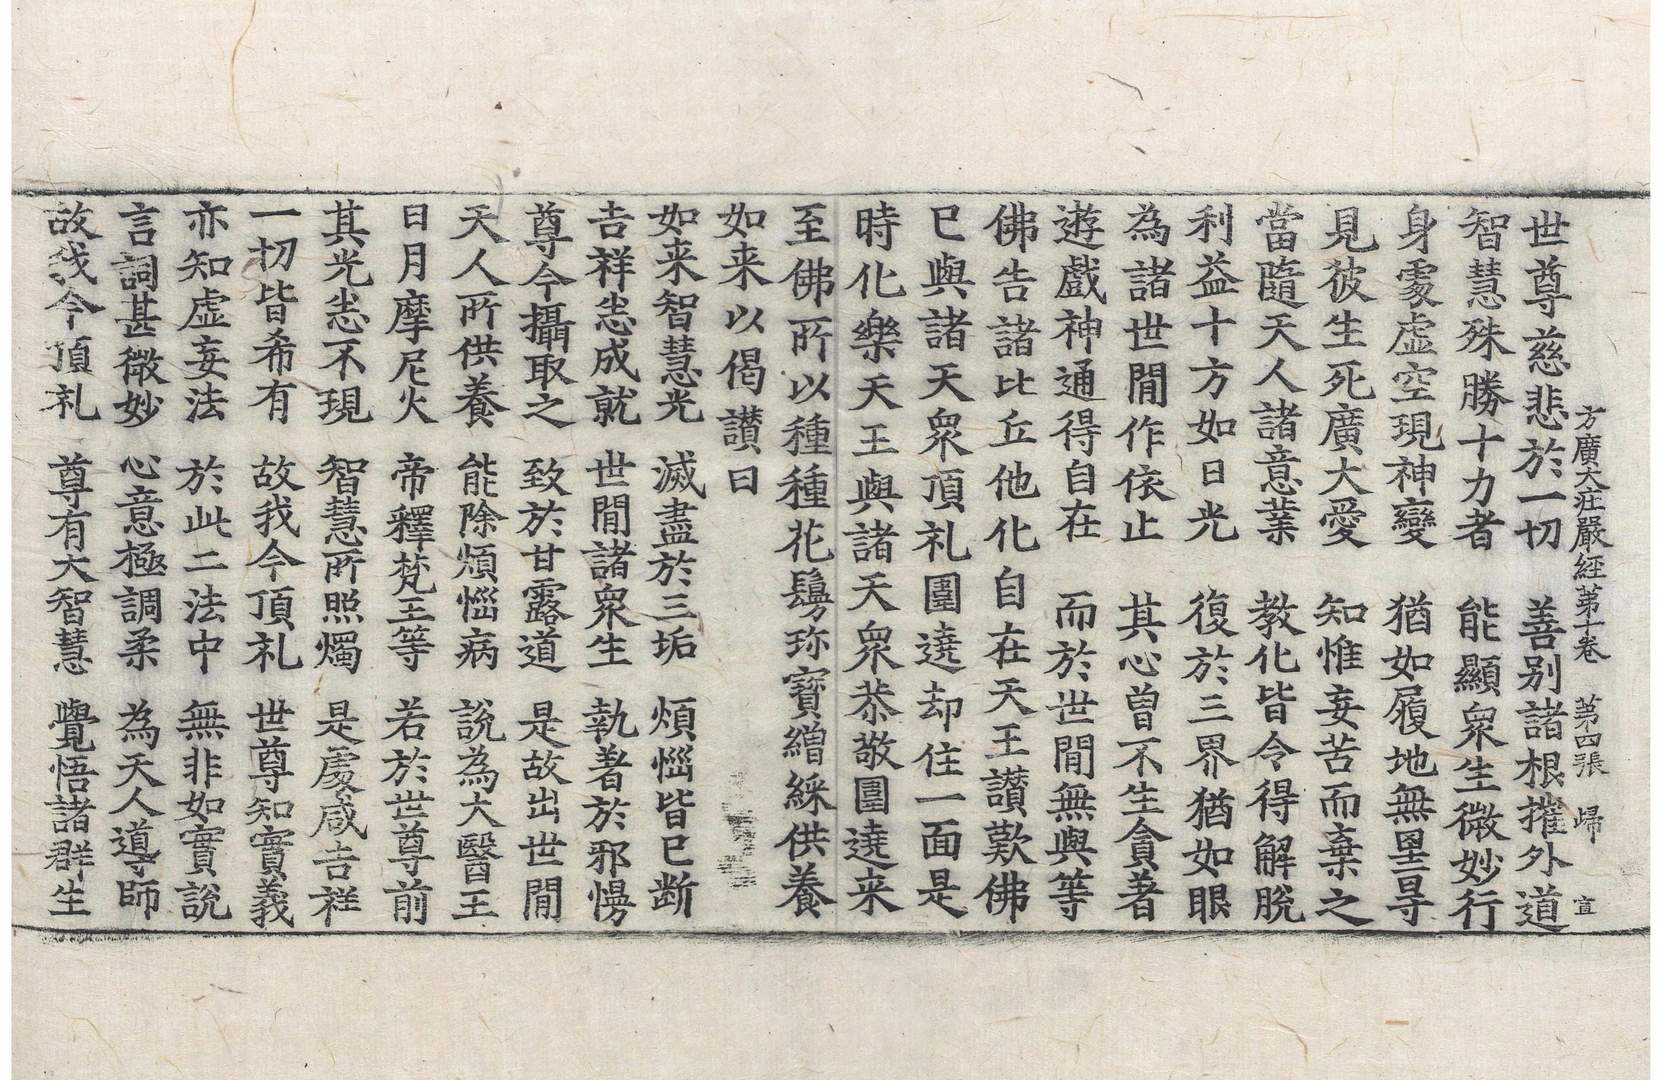 方廣大莊嚴經第十卷　第四張　歸　宣
世尊慈悲於一切　善別諸根摧外道
智慧殊勝十力者　能顯衆生微妙行
身處虛空現神變　猶如履地無罣㝵
見彼生死廣大愛　知惟妄苦而棄之
當隨天人諸意業　教化皆令得解脫
利益十方如日光　復於三界猶如眼
為諸世閒作依止　其心曾不生貪著
遊戲神通得自在　而於世閒無與等
佛告諸比丘他化自在天王讃歎佛
已與諸天衆頂礼圍遶却住一面是
時化樂天王與諸天衆恭敬圍遶来
至佛所以種種花鬘珎寶繒綵供養
如来以偈讃曰
如来智慧光　滅盡於三垢　煩惱皆已断
吉祥悉成就　世閒諸衆生　執著於邪慢
尊今攝取之　致於甘露道　是故出世閒
天人所供養　能除煩惱病　說為大醫王
日月摩尼火　帝釋梵王等　若於世尊前
其光悉不現　智慧所照燭　是處咸吉祥
一切皆希有　故我今頂礼　世尊知實義
亦知虛妄法　於此二法中　無非如實說
言詞甚微妙　心意極調柔　為天人導師
故我今頂礼　尊有大智慧　覺悟諸群生